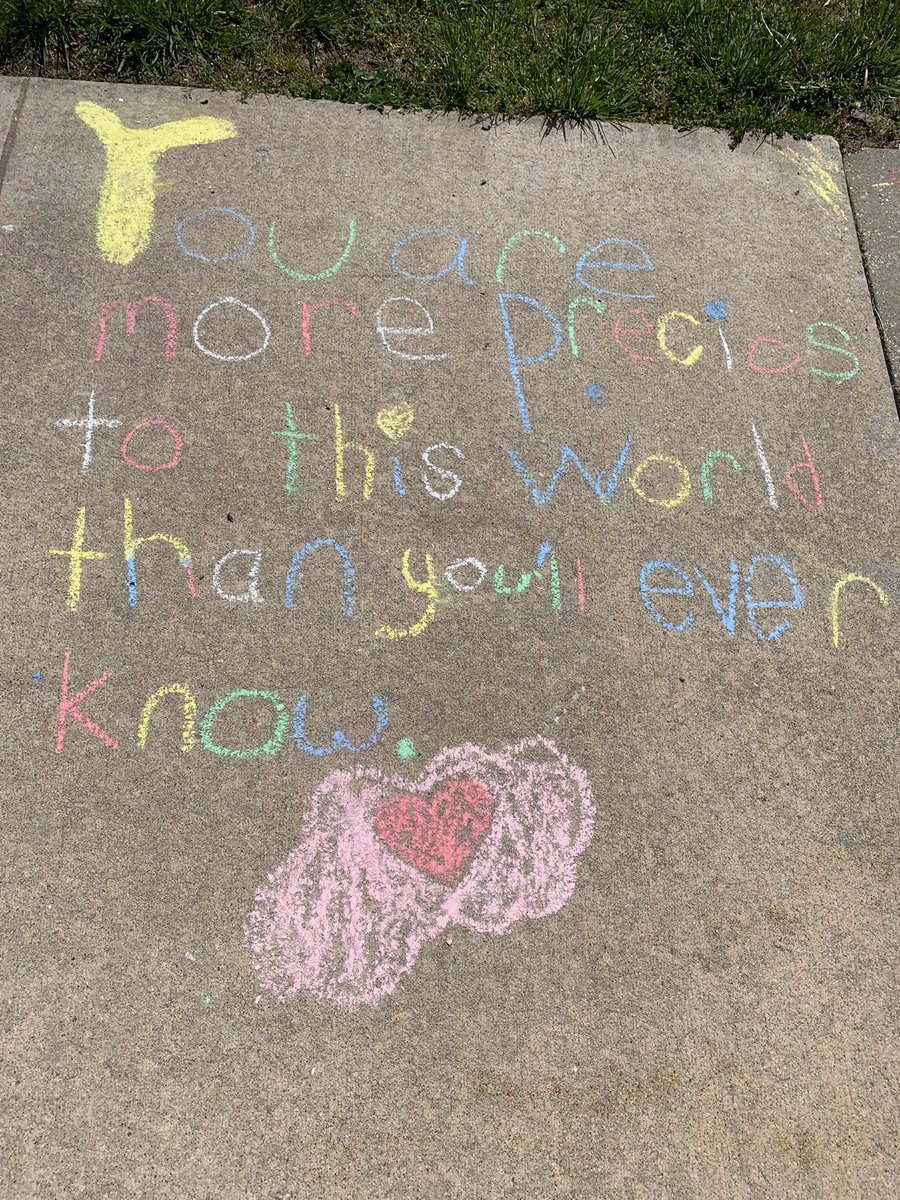 You are
more precios
to this world
than you'll ever
know.